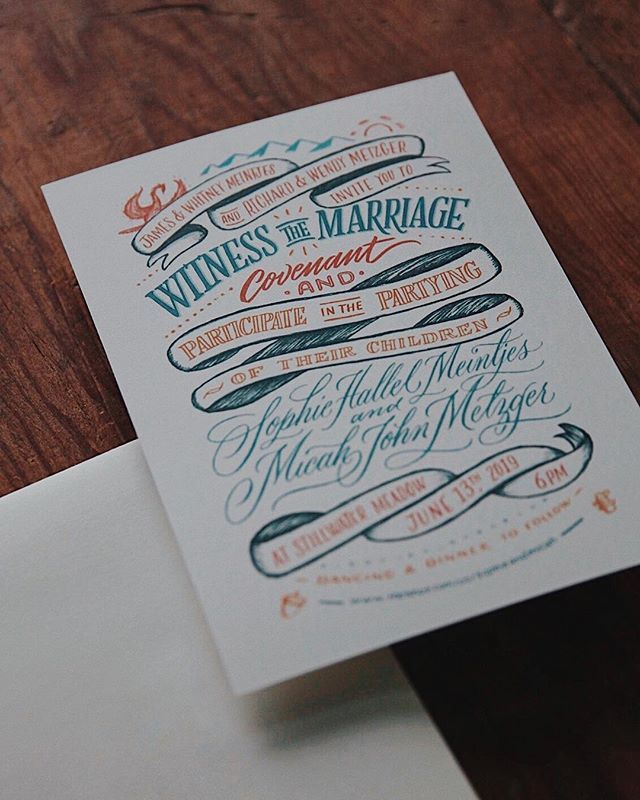 JAMES & WHITNEY MEINTJES
AND RICHARD & WENDY METZGER
INVITE YOU TO
WITNESS THE MARRIAGE
Covenant
AND
PARTICIPATE IN THE PARTYING
OF THEIR CHILDREN
Sophie Hallel Meintjes
and
Micah John Metzger
AT STILLWATER MEADOW
JUNE 13TH 2019
6PM
DANCING & DINNER TO FOLLOW